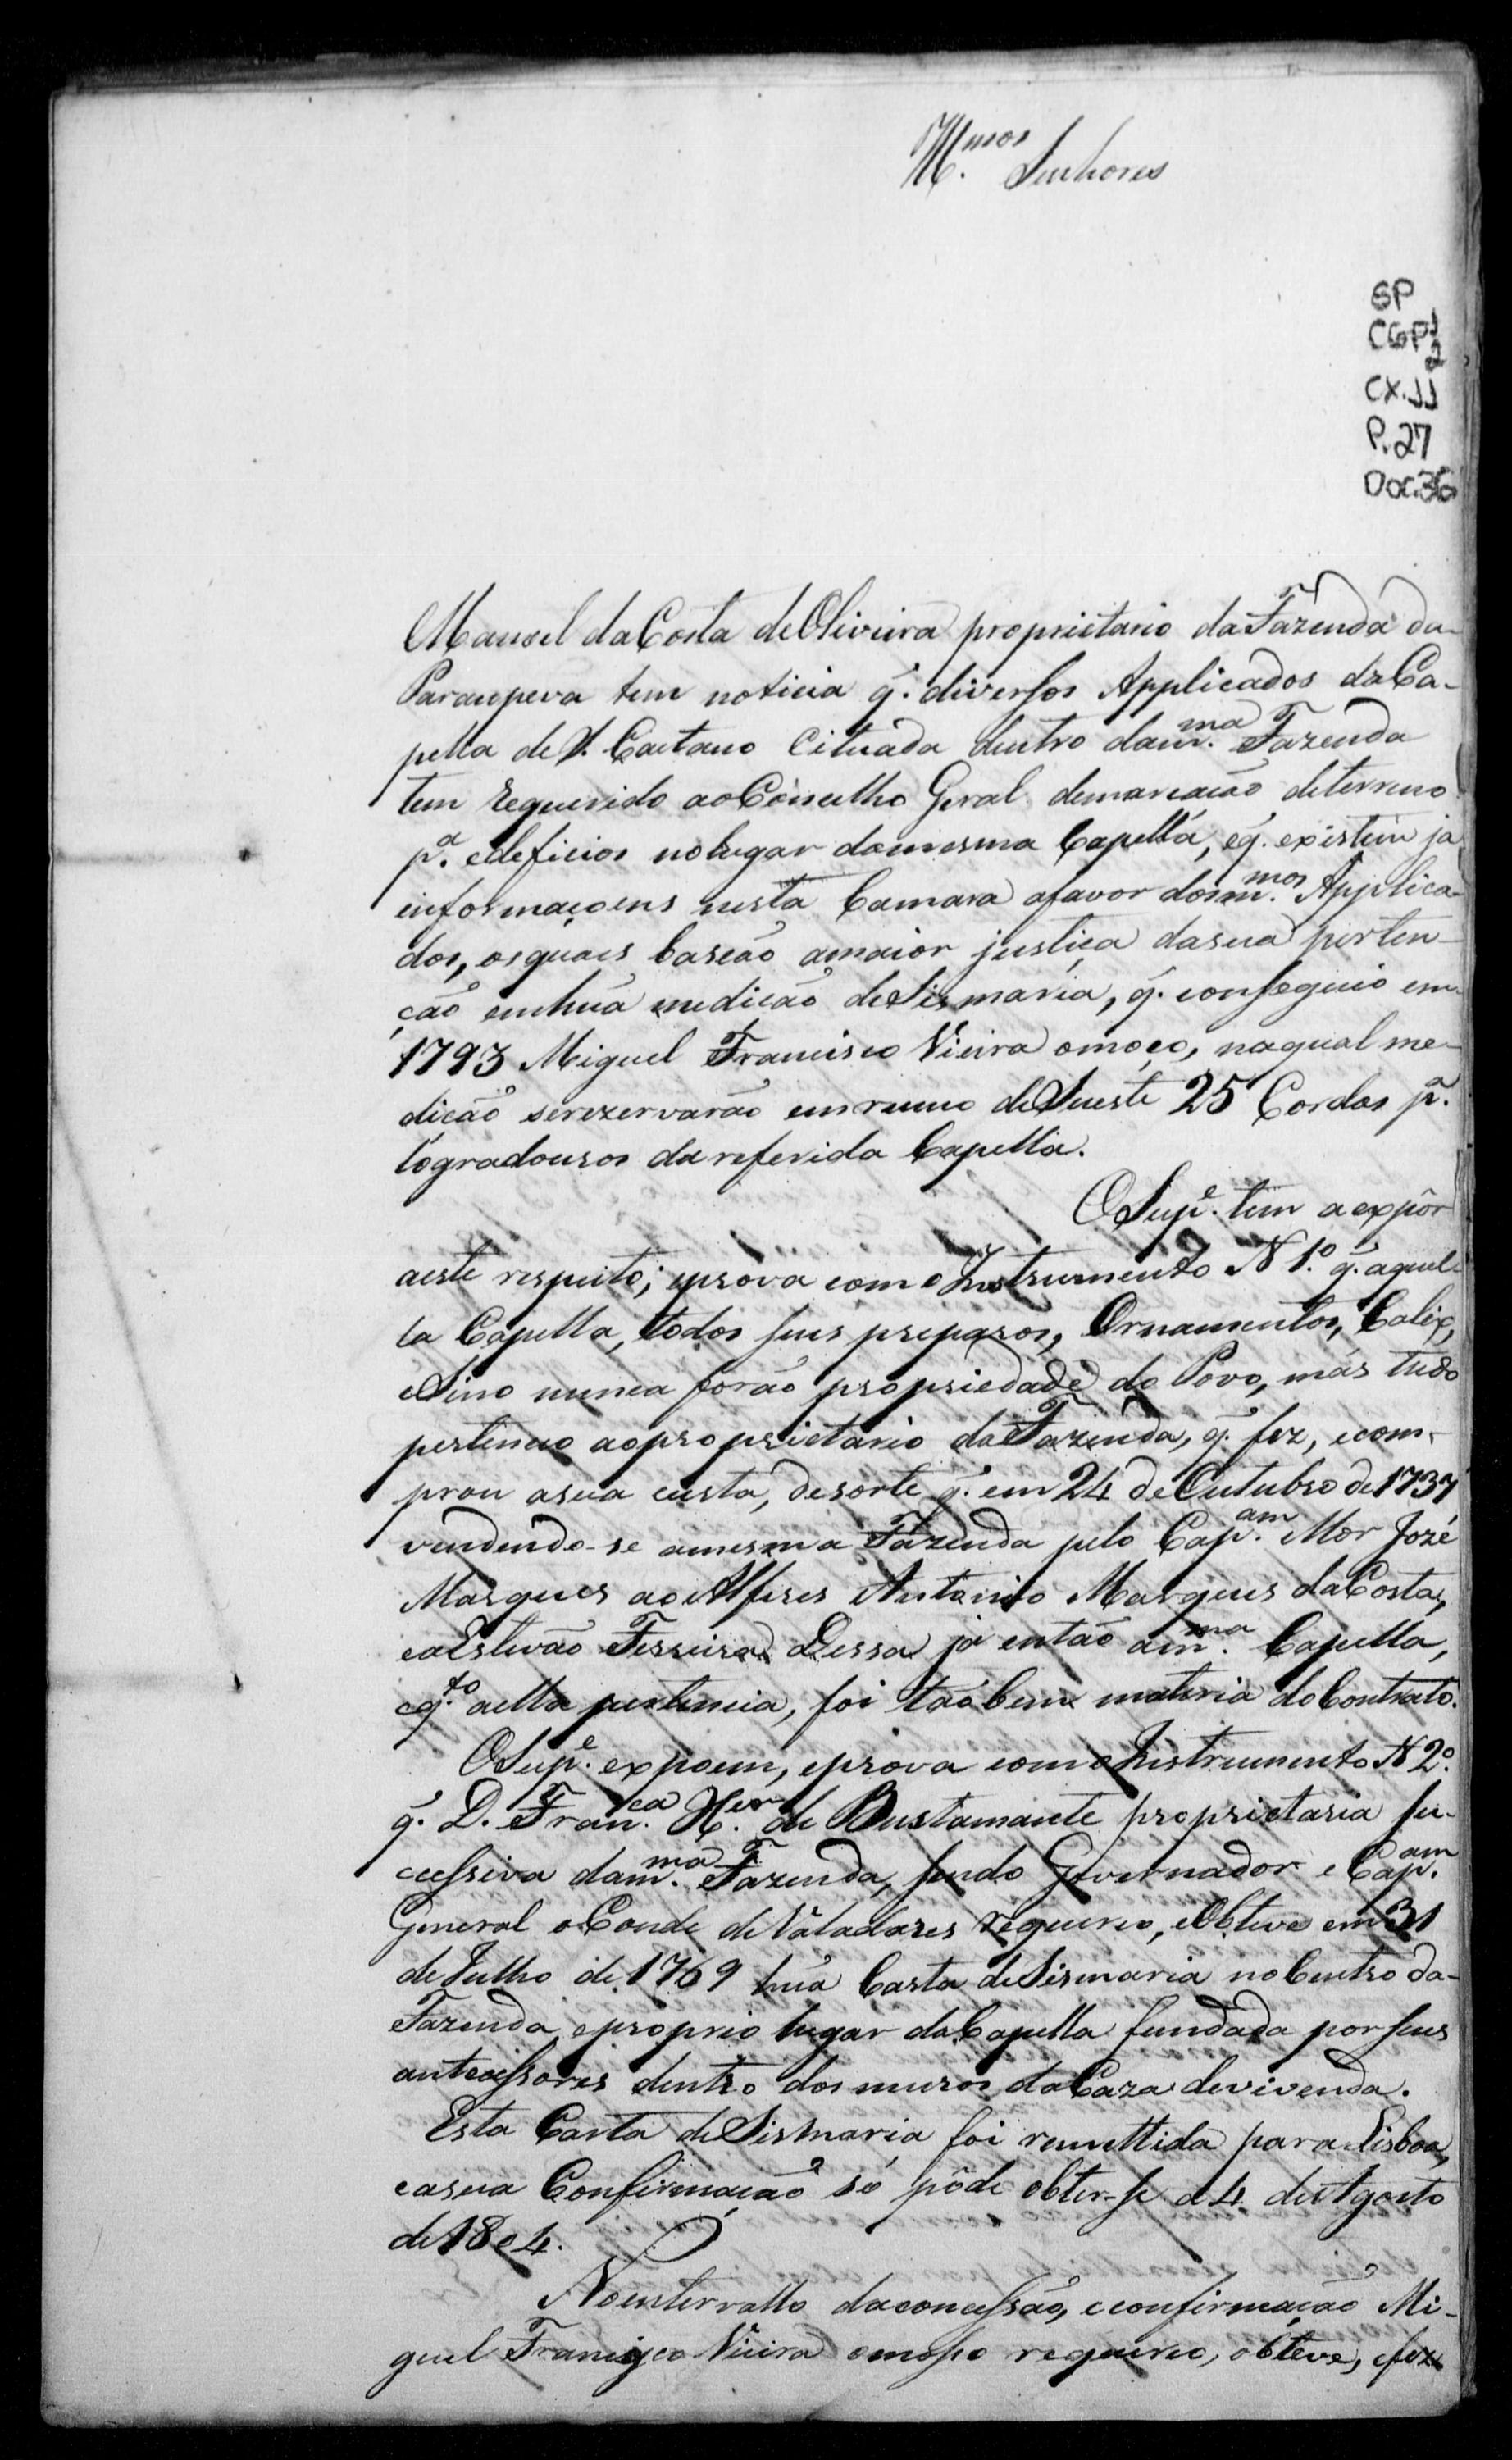 Ill.mos Senhores
SP
CGP 1/2
CX.11
P.27
Doc.36
Manoel daCosta deOliveira proprietario daFazenda da-
Paraupeva tem noticia q. diversos Applicados daCa-
pella de S. Caetano Cituada dentro dam.ma Fazenda
tem requerido aoConselho Geral demarcação deterreno
p.a edeficios nolugar damesma Capella, eq. existem ja
informaçoens nesta Camara afavor dosm.mos Applica-
dos, osquaes baseão amaior justiça dasua perten-
ção emhũa medicão deSismaria, q. conseguio em
1793 Miguel Francisco Vieira omoço, naqual me-
dicão serezervarão emrumo deSueste 25 Cordas p.a
logradouros da referida Capella.
OSup.e tem aexpôr
aeste respeito; eprova com oInstrumento N 1.o q. aquel-
la Capella, todos seus preparos, Ornamentos, Calix,
eSino nunca forão propriedade do Povo, más tudo
pertenceo aoproprietario daFazenda, q. fez, ecom-
prou asua custa, desorte q. em 24 deOutubro de 1737
vendendo-se amesma Fazenda pelo Cap.am Mor José
Marques aoAlferes Antonio Marques daCosta,
eaEstevão Ferreira Dessa já então am.ma Capella,
eq.to aella pertencia, foi tãobem materia doContrato.
OSup.e expoem, eprova com oInstrumento N 2.o
q. D. Fran.ca X.er de Bustamante proprietaria su-
cessiva dam.ma Fazenda, sendo Governador e Cap.am
General oConde deValadares requereo, eObteve em 31
deJulho de 1769 hũa Carta deSismaria noCentro da-
Fazenda, eproprio lugar daCapella fundada porseus
antecessores dentro dos muros daCaza devivenda.
Esta Carta deSismaria foi remettida paraLisboa,
easua Confirmação só pôde obter-se a 4 deAgosto
de 1804.
Nointervallo daconcessão, econfirmação Mi-
guel Francisco Vieira omoço requereo, obteve, efez